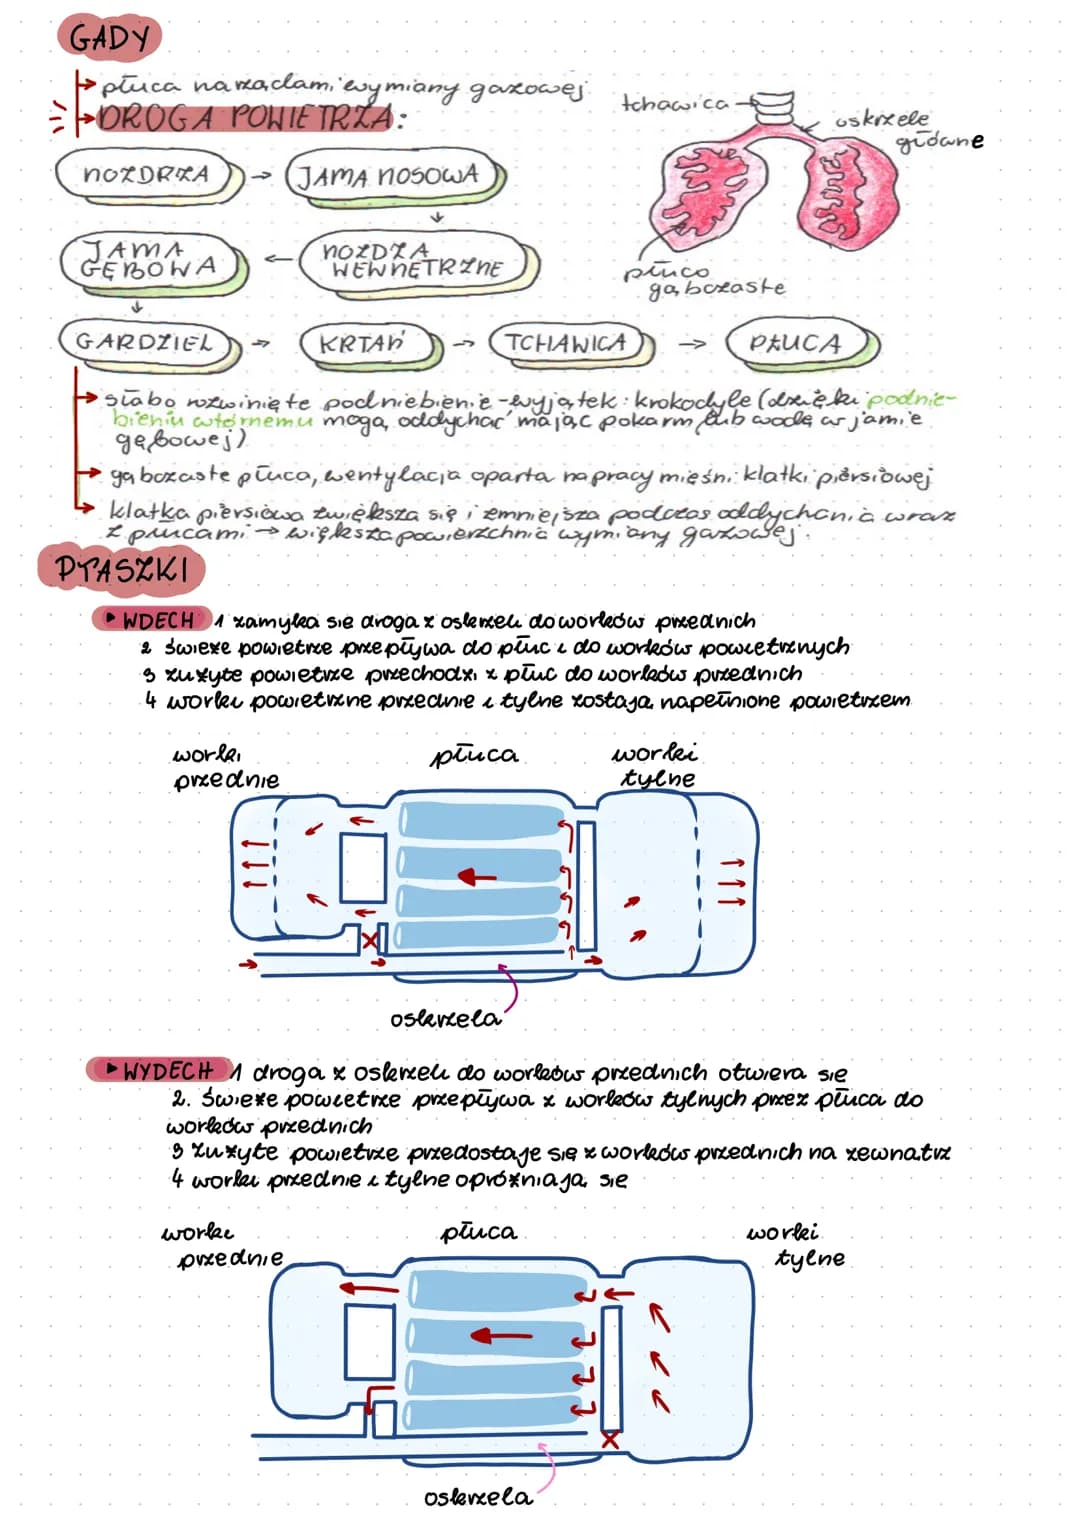 GADY
płuca narządami wymiany gazowej
DROGA POWIETRZA:
tchawica
oskrzele
główne
NOZDRZA → JAMA NOSOWA
JAMA
GĘBOWA ← NOZDZA
WEWNĘTRZNE
płuco
gąbczaste
GARDZIEL → KRTAŃ → TCHAWICA → PŁUCA
słabo rozwinięte podniebienie - wyjątek: krokodyle (dzięki podnie-
bieniu wtórnemu mogą oddychać mając pokarm lub wodę w jamie
gębowej)
gąbczaste płuca, wentylacja oparta na pracy mięśni klatki piersiowej
klatka piersiowa zwiększa się i zmniejsza podczas oddychania wraz
z płucami → większa powierzchnia wymiany gazowej.
PTASZKI
WDECH 1 zamyka się droga z oskrzeli do worków przednich
2 świeże powietrze przepływa do płuc i do worków powietrznych
3 zużyte powietrze przechodzi z płuc do worków przednich
4 worki powietrzne przednie i tylne zostają napełnione powietrzem
worki
przednie
płuca
worki
tylne
oskrzela
WYDECH 1 droga z oskrzeli do worków przednich otwiera się
2. świeże powietrze przepływa z worków tylnych przez płuca do
worków przednich
3 zużyte powietrze przedostaje się z worków przednich na zewnatrz
4 worki przednie i tylne opróżniają się
worki
przednie
płuca
worki
tylne
oskrzela